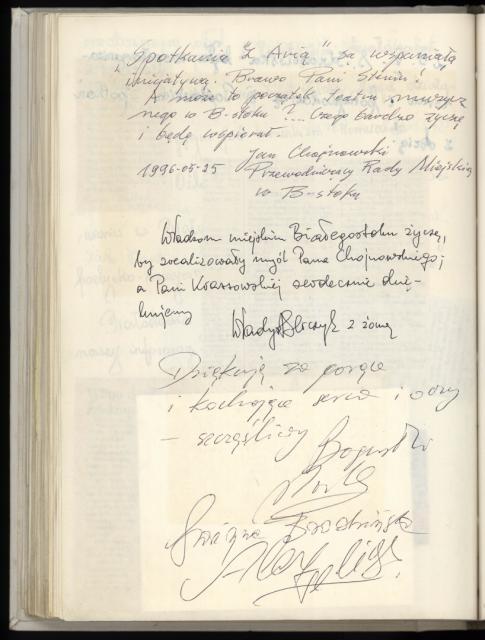 „Spotkania z Arią" są wspaniałą
inicjatywą. Brawo Pani Steniu!
A może to początek teatru muzycz
nego w B-stoku?... Czego bardzo życzę
i będę wspierał.
Jan Chojnowski
1996-05-25 Przewodniczący Rady Miejskiej
w B-stoku
Władzom miejskim Białegostoku życzę,
by zrealizowały myśl Pana Chojnowskiego,
a Pani Krassowskiej serdecznie dzię-
kujemy
z żoną
Dziękuję za gorące
i kochające serca i oczy
– szczęśliwy
Grażyna Brodzińska